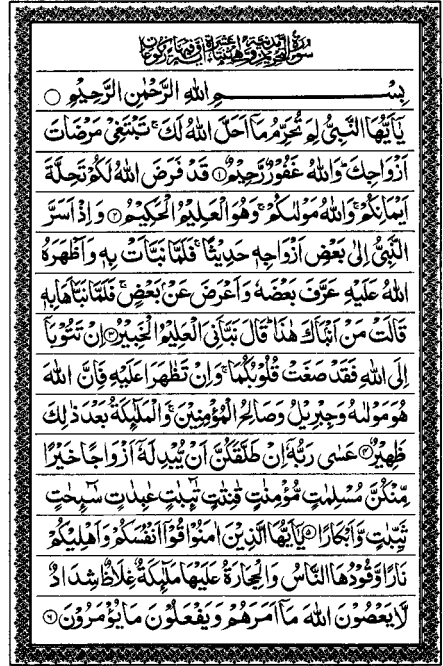 سورة التحريم مدنية وهي اثنتا عشرة اية وفيها ركوعان
بِسْمِ اللهِ الرَّحْمٰنِ الرَّحِيْمِ
يٰۤاَيُّهَا النَّبِيُّ لِمَ تُحَرِّمُ مَاۤ اَحَلَّ اللهُ لَكَ ۚ تَبْتَغِيْ مَرْضَاتَ
اَزْوَاجِكَ ؕ وَاللهُ غَفُوْرٌ رَّحِيْمٌ ﴿۱﴾ قَدْ فَرَضَ اللهُ لَكُمْ تَحِلَّةَ
اَيْمَانِكُمْ ۚ وَاللهُ مَوْلٰىكُمْ ۚ وَهُوَ الْعَلِيْمُ الْحَكِيْمُ ﴿۲﴾ وَاِذْ اَسَرَّ
النَّبِيُّ اِلٰى بَعْضِ اَزْوَاجِهٖ حَدِيْثًا ۚ فَلَمَّا نَبَّاَتْ بِهٖ وَاَظْهَرَهُ
اللهُ عَلَيْهِ عَرَّفَ بَعْضَهٗ وَاَعْرَضَ عَنْۢ بَعْضٍ ۚ فَلَمَّا نَبَّاَهَا بِهٖ
قَالَتْ مَنْ اَنْۢبَاَكَ هٰذَا ؕ قَالَ نَبَّاَنِيَ الْعَلِيْمُ الْخَبِيْرُ ﴿۳﴾ اِنْ تَتُوْبَاۤ
اِلَى اللهِ فَقَدْ صَغَتْ قُلُوْبُكُمَا ۚ وَاِنْ تَظٰهَرَا عَلَيْهِ فَاِنَّ اللهَ
هُوَ مَوْلٰىهُ وَجِبْرِيْلُ وَصَالِحُ الْمُؤْمِنِيْنَ ۚ وَالْمَلٰٓئِكَةُ بَعْدَ ذٰلِكَ
ظَهِيْرٌ ﴿۴﴾ عَسٰى رَبُّهٗۤ اِنْ طَلَّقَكُنَّ اَنْ يُّبْدِلَهٗۤ اَزْوَاجًا خَيْرًا
مِّنْكُنَّ مُسْلِمٰتٍ مُّؤْمِنٰتٍ قٰنِتٰتٍ تٰٓئِبٰتٍ عٰبِدٰتٍ سٰٓئِحٰتٍ
ثَيِّبٰتٍ وَّاَبْكَارًا ﴿۵﴾ يٰۤاَيُّهَا الَّذِيْنَ اٰمَنُوْا قُوْۤا اَنْفُسَكُمْ وَاَهْلِيْكُمْ
نَارًا وَّقُوْدُهَا النَّاسُ وَالْحِجَارَةُ عَلَيْهَا مَلٰٓئِكَةٌ غِلَاظٌ شِدَادٌ
لَّا يَعْصُوْنَ اللهَ مَاۤ اَمَرَهُمْ وَيَفْعَلُوْنَ مَا يُؤْمَرُوْنَ ﴿۶﴾